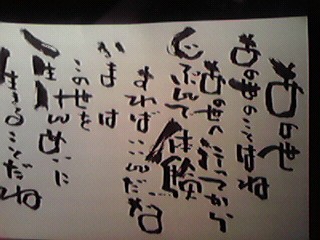 あの世
あの世のことはね
あの世へ行ってから
じぶんで体験
すればいいんだね
いまは
この世を
一生けんめいに
生きることだね